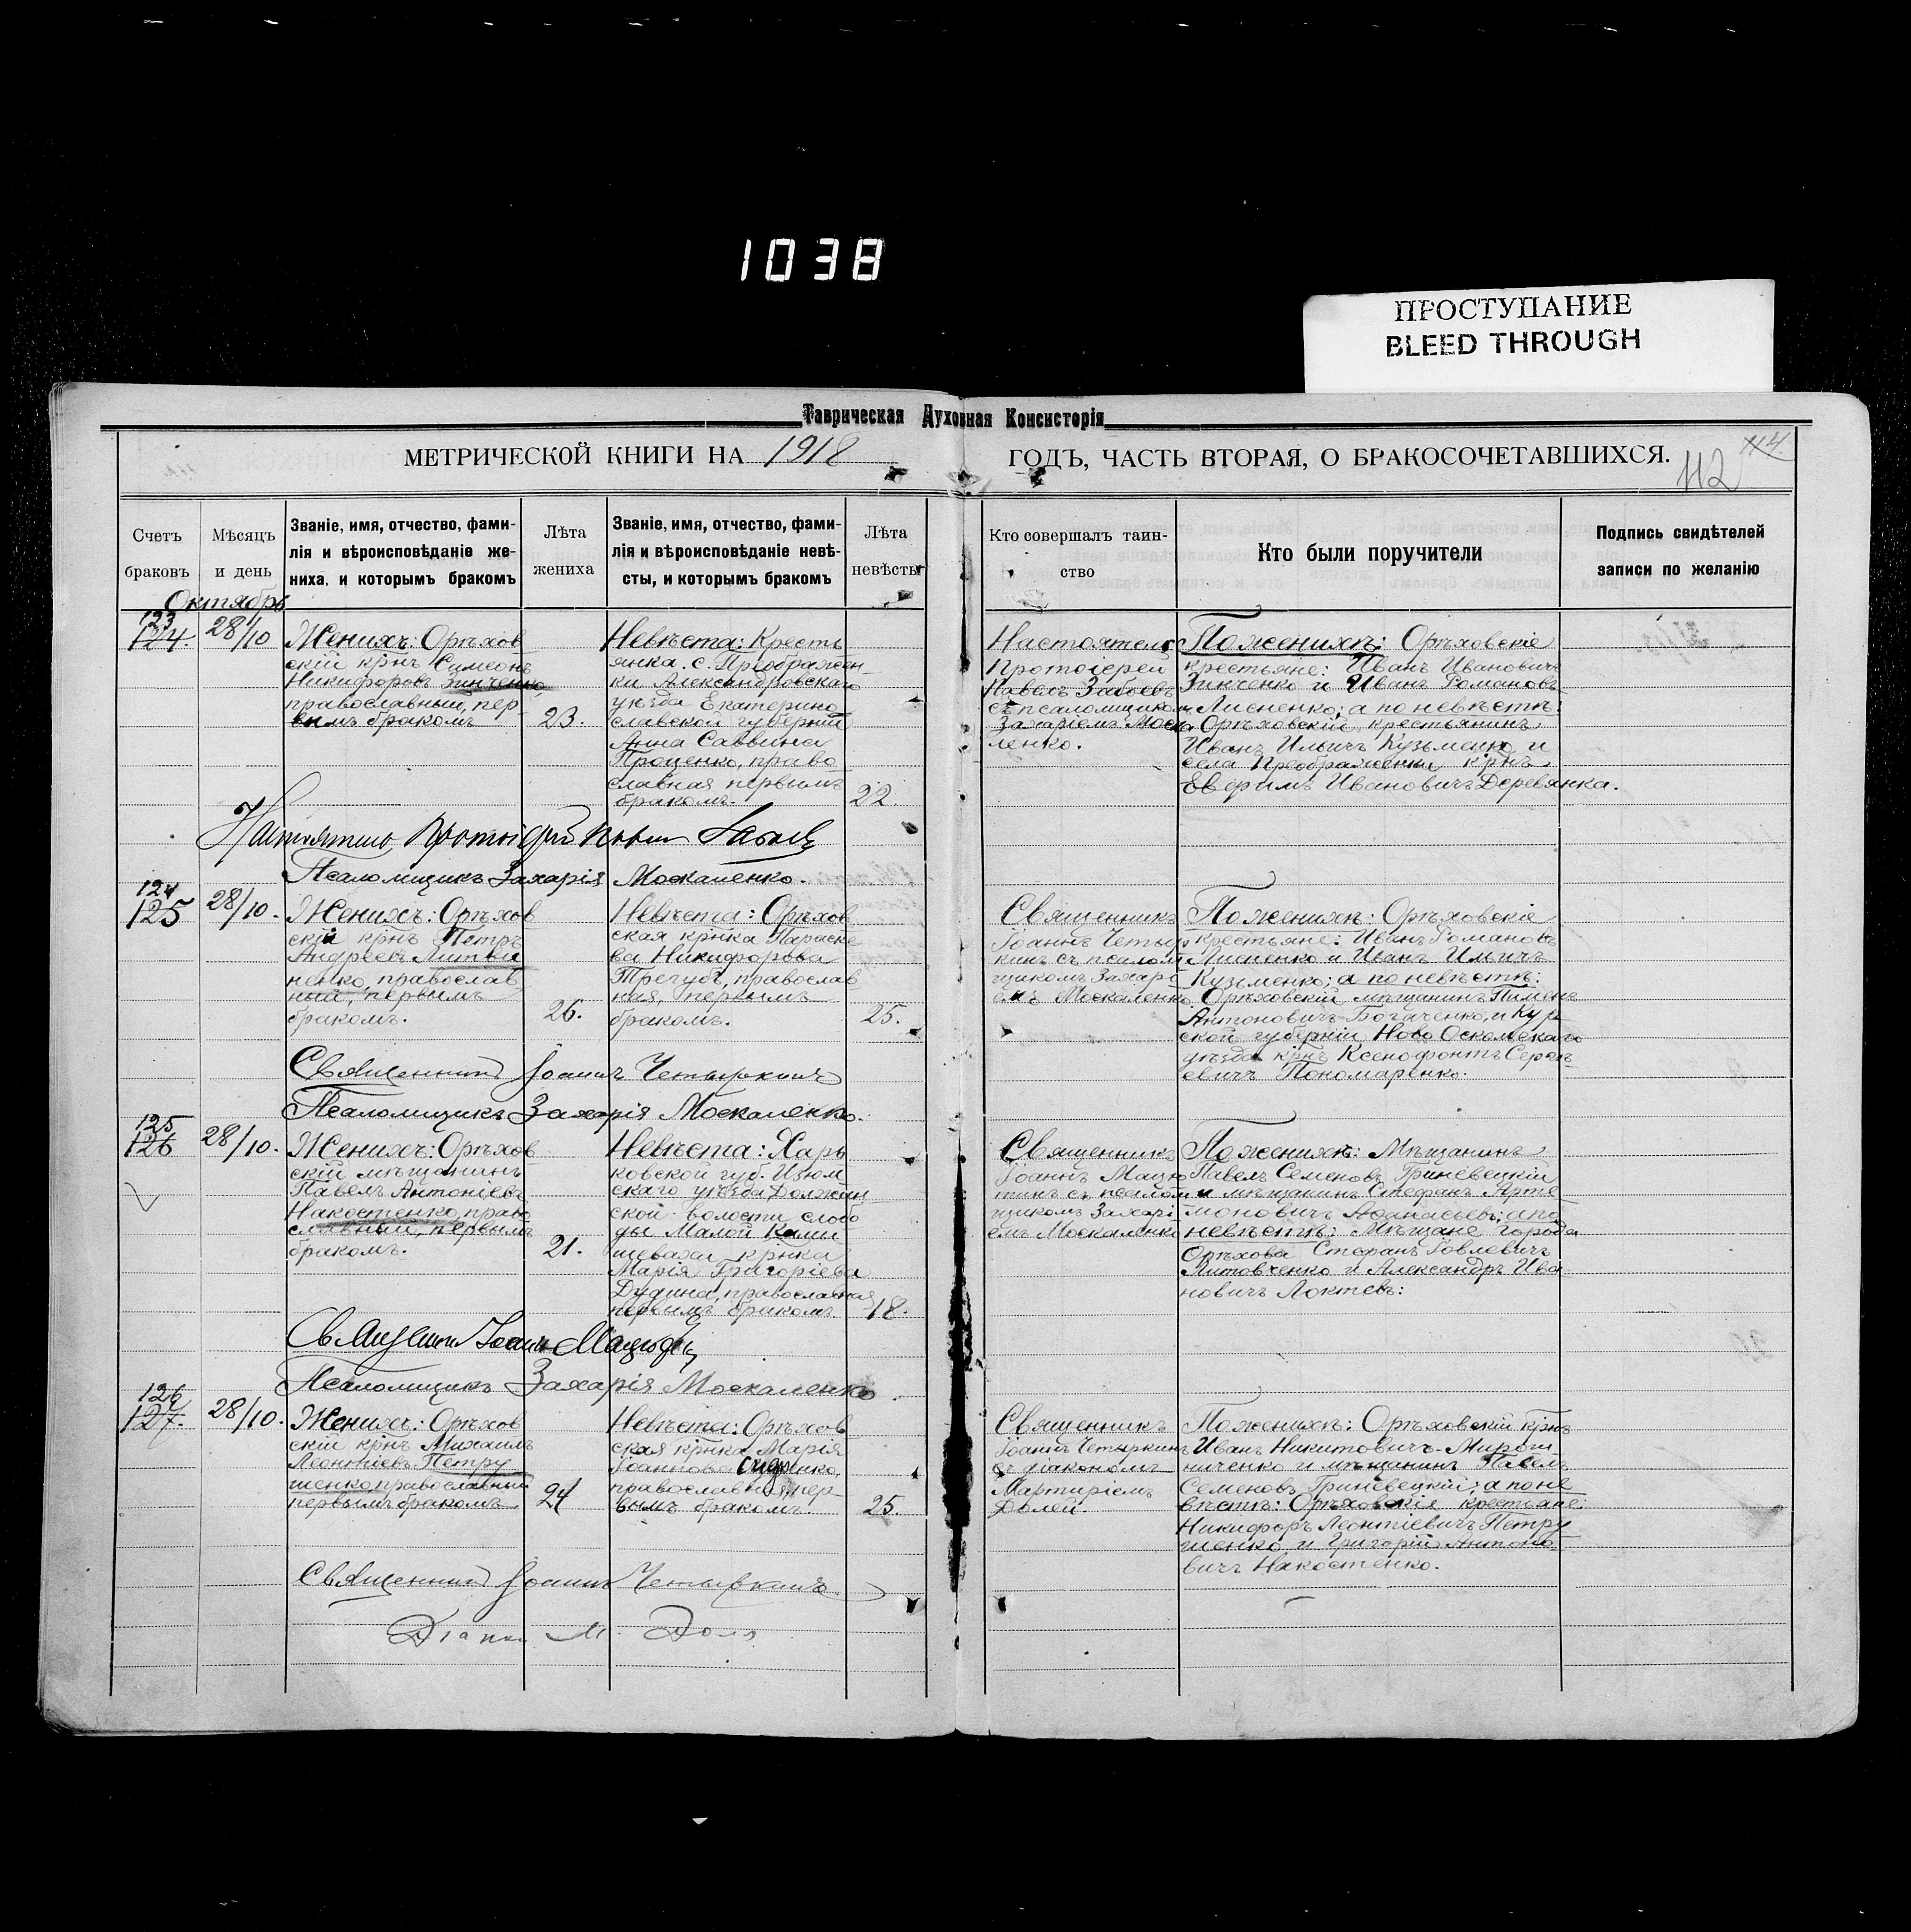 1038
ПРОСТУПАНИЕ
BLEED THROUGH
Таврическая Духовная Консисторія
МЕТРИЧЕСКОЙ КНИГИ НА 1918
ГОДЪ, ЧАСТЬ ВТОРАЯ, О БРАКОСОЧЕТАВШИХСЯ.
114.
112
Счетъ
браковъ
Мѣсяцъ
и день
Званіе, имя, отчество, фами-
лія и вѣроисповѣданіе же-
ниха, и которымъ бракомъ
Лѣта
жениха
Званіе, имя, отчество, фами-
лія и вѣроисповѣданіе невѣ-
сты, и которымъ бракомъ
Лѣта
невѣсты
Кто совершалъ таин-
ство
Кто были поручители
Подпись свидѣтелей
записи по желанію
Октябрь
123
124.
28/10
Женихъ: Орѣхов
скій крнъ Симеонъ
Никифоровъ Зинченко,
православный, пер-
вымъ бракомъ
23.
Невѣста: Кресть
янка с. Преображен-
ки Александровскаго
уѣзда Екатерино
славской губерніи
Анна Саввина
Проценко, право
славная первымъ
бракомъ.
22.
Настоятель
Протоіерей
Павелъ Забоевъ
съ псаломщикомъ
Захаріемъ Моска
ленко.
По женихѣ: Орѣховскіе
крестьяне: Иванъ Ивановичъ
Зинченко и Иванъ Романовъ
Лисненко; а по невѣстѣ:
Орѣховскій крестьянинъ
Иванъ Ильичъ Кузьменко и
села Преображенки крнъ
Иванович Деревянка.
Настоятель Протоіерей Павелъ Забоевъ
Псаломщикъ Захарія Москаленко.
124
125
28/10.
Женихъ: Орѣхов
скій крнъ Петръ
Андреевъ Литви
ненко, православ
ный, первымъ
бракомъ.
26.
Невѣста: Орѣхов
ская крнка Параске
ва Никифорова
Трегубъ, православ
ная, первымъ
бракомъ.
25.
Священникъ
Іоаннъ Четыр
кинъ съ псалом
щикомъ Захарі
емъ Москаленко.
По женихѣ: Орѣховскіе
крестьяне: Иванъ Романовъ
Лисненко и Иванъ Ильичъ
Кузьменко; а по невѣстѣ:
Орѣховскій мѣщанинъ Пименъ
Антоновичъ Богаченко, и Кур
ской губерніи Ново Оскольскаго
уѣзда крнъ Ксенофонтъ Серг
евичъ Пономаренко.
Священникъ Іоаннъ Четыркинъ
Псаломщикъ Захарія Москаленко.
125
126
28/10.
Женихъ: Орѣхов
скій мѣщанинъ
Павелъ Антоніевъ
Накостенко, право
славный, первымъ
бракомъ.
21.
Невѣста: Харь
ковской губ. Изюм
скаго уѣзда
ской волости слобо
ды Малой Камы
шевахи крнка
Марія Григоріева
Дудина, православная
первымъ бракомъ
18.
Священникъ
Іоаннъ Мацю
тинъ съ псалом
щикомъ Захарі
емъ Москаленко
По женихѣ: Мѣщанинъ
Павелъ Семеновъ Гриневецкій
и мѣщанинъ Стефанъ Арте
моновичъ Аѳанасьевъ; а по
невѣстѣ: Мѣщане города
Орѣхова Стефанъ Іовлевичъ
Литовченко и Александръ Ива
новичъ Локтевъ:
Священникъ Іоаннъ
Псаломщикъ Захарія Москаленко.
126
127.
28/10.
Женихъ: Орѣхов
скій крнъ Михаилъ
Леонтіевъ Петру
шенко православный
первымъ бракомъ
24
Невѣста: Орѣхов
ская крнка Марія
Іоаннова Сидоренко,
православная, пер-
вымъ бракомъ.
25.
Священникъ
Іоаннъ Четыркинъ
съ діакономъ
Мартиріемъ
Долей.
По женихѣ: Орѣховскій крнъ
Иванъ Никитовичъ Мирош
ниченко и мѣщанинъ Павелъ
Семеновъ Гриневецкій; а по не
вѣстѣ: Орѣховскіе крестьяне:
Никифоръ Леонтіевичъ Петру
шенко и Григорій Антоно
вичъ Накостенко.
Священникъ Іоаннъ Четыркинъ
Діаконъ М. Доля